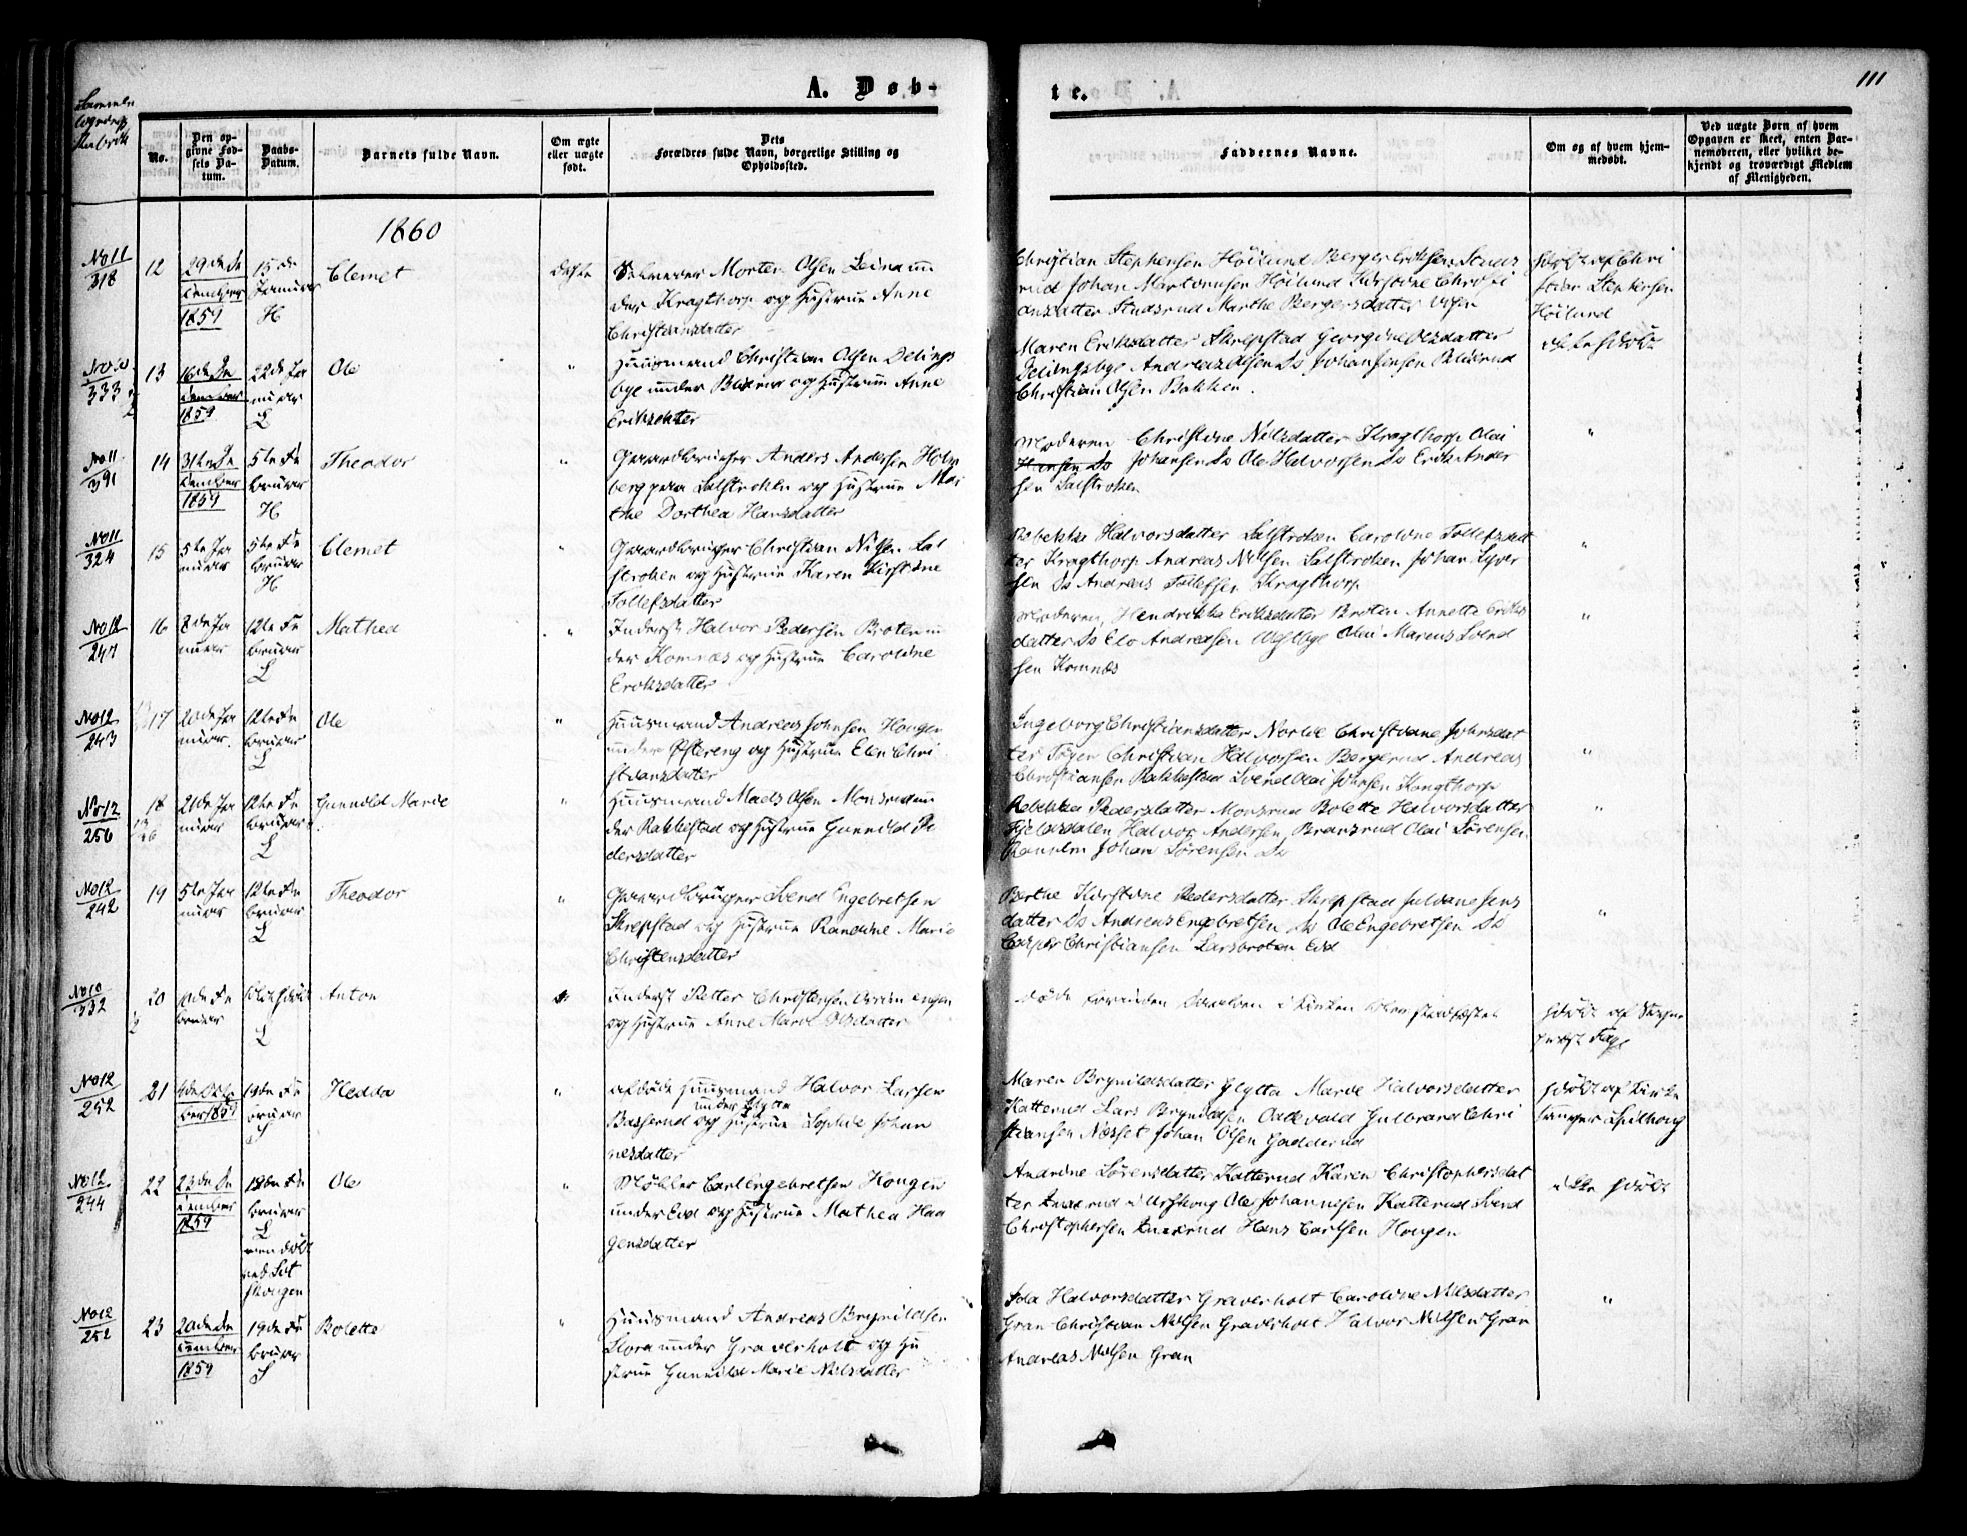 A. Døb-
te.
111
No.
Den op-
givne Fød-
sels Da-
tum.
Daabs-
Datum.
Barnets fulde Navn.
Om ægte
eller uægte
født.
Dets
Forældres fulde Navn, borgerlige Stilling og
Opholdssted.
Faddernes Navne.
Om og af hvem hjem-
medøbt.
Ved uægte Børn af hvem
Opgaven er skeet, enten Bar-
nemoderen, eller hvilket be-
kjendt og troværdigt Medlem
af Menigheden.
1860
No 11
318
12
29de De
cember
1859
15de
Januar
H
Clemet
Ægte
Selveier Morten Olsen un
der Kragthorp og Hustrue Anne
Christiansdatter
Christian Stephensen Høilund Berger Eriksen Studs
rud Johan Martinusen Høilund Kirstine Christi
ansdatter Studsrud Marthe Bergersdatter
hjdøbt af Chri
stian Stephensen
Høilund
333
13
16de De
cember
1859
22de Ja
nuar
L
Ole
"
Huusmand Christian Olsen Delings
bye under og Hustrue Anne
Eriksdatter
Maren Eriksdatter Skrepstad Georgine Olsdatter
Delingsbye Andreas Olsen Do Johan Jensen
Christian Olsen Bakken.
ikke hjdøbt
No 11
391
14
31te De
cember
1859
5te Fe
bruar
H
Theodor
"
Gaardbruger Anders Andersen Holm
berg paa og Hustrue Mar
the Dorthea Hansdatter
Moderen Christine Nilsdatter Kragthorp Olai
Hansen Do Johansen Do Ole Halvorsen Do Erik Ander
sen
"
No 11
324
15
5te Ja
nuar
5te Fe
bruar
H
Clemet
"
Gaardbruger Christian Nilsen
og Hustrue Karen Kirstine
Tollefsdatter
Rebekka Halvorsdatter Caroline Tollefsdat
ter Kragthorp Andreas Nilsen Johan Iver
sen Do Andreas Tollefsen Kragthorp
"
No 12
247
16
8de Ja
nuar
12te Fe
bruar
L
Mathea
"
Inderst Halvor Pedersen Broten un
der Komnæs og Hustrue Caroline
Eriksdatter
Moderen, Hendrikke Eriksdatter Broten Annette Eriks
datter Do Andreasen Olai Marius Svend
sen Komnæs
"
No 12
243
17
20de Ja
nuar.
12te Fe
bruar
L
Ole
"
Huusmand Andreas Johnsen Hougen
under Østereng og Hustrue Elen Chri
stiansdatter
Ingeborg Christiansdatter Christiane Johnsdat
ter Christian Halvorsen Bergerud Andreas
Christiansen Rakkestad Svend Olai Johnsen Kragthorp
"
No 12
256
18
21de Ja
nuar
12te Fe
bruar
L
Gunnild Marie
"
Huusmand Mads Olsen Monsrud un
der Rakkestad og Hustrue Gunnild Pe
dersdatter
Rebekka Pedersdatter Monsrud Bolette Halvorsdatter
Fjeldsdalen Halvor Andersen Bransrud Olai Sørensen
Johan Sørensen Do
"
No 12
242
19
5te Ja
nuar
12te Fe
bruar
L
Theodor
"
Gaardbruger Svend Engebretsen
Skrepstad og Hustrue Randine Marie
Christensdatter
Berthe Kirstine Pedersdatter Skrepstad Juliane Jens
datter Do Andreas Engebretsen Do Ole Engebretsen Do
Casper Christiansen Larsbroten Eid
"
No 10
332
20
10de Fe
bruar
hjdøbt
L
Anton
"
Inderst Petter Christensen
og Hustrue Anne Marie Olsdatter
døde forinden Daaben i Kirken blev stadfæstet
hjdøbt af Sogne
præst
No 12
252
21
4de Octo
ber 1859
19de Fe
bruar
S
Hedda
"
afdøde Huusmand Halvor Larsen
under Glytta
Basserud og Hustrue Sophie Johan
nesdatter
Maren Brynildsdatter Glytta Marie Halvorsdatter
Katterud Lars Brynildsen Gulbrand Chri
stiansen Næsset Johan Olsen Gadderud
hjdøbt af Kirke
sanger Spilhoug
No 12
244
22
23de De
cember
1859
12te Fe
bruar
L
Ole
"
Møller Carl Engebretsen Hougen
under Eid og Hustrue Mathea Haa
gensdatter
Andrine Sørensdatter Katterud Karen Christophersdat
ter i Urskoug Ole Johannesen Katterud Svend
Christophersen Hans Carlsen Hougen
ikke hjdøbt
No 12
252
23
20de De
cember
1859
19de Fe
bruar
S
Bolette
"
Huusmand Andreas Brynildsen
Slora under Graverholt og Hu
strue Gunnild Marie Nilsdatter
Ida Halvorsdatter Graverholt Caroline Nilsdatter
Gran Christian Nilsen Graverholt Halvor Nilsen Gran
Andreas Nilsen Gran
"